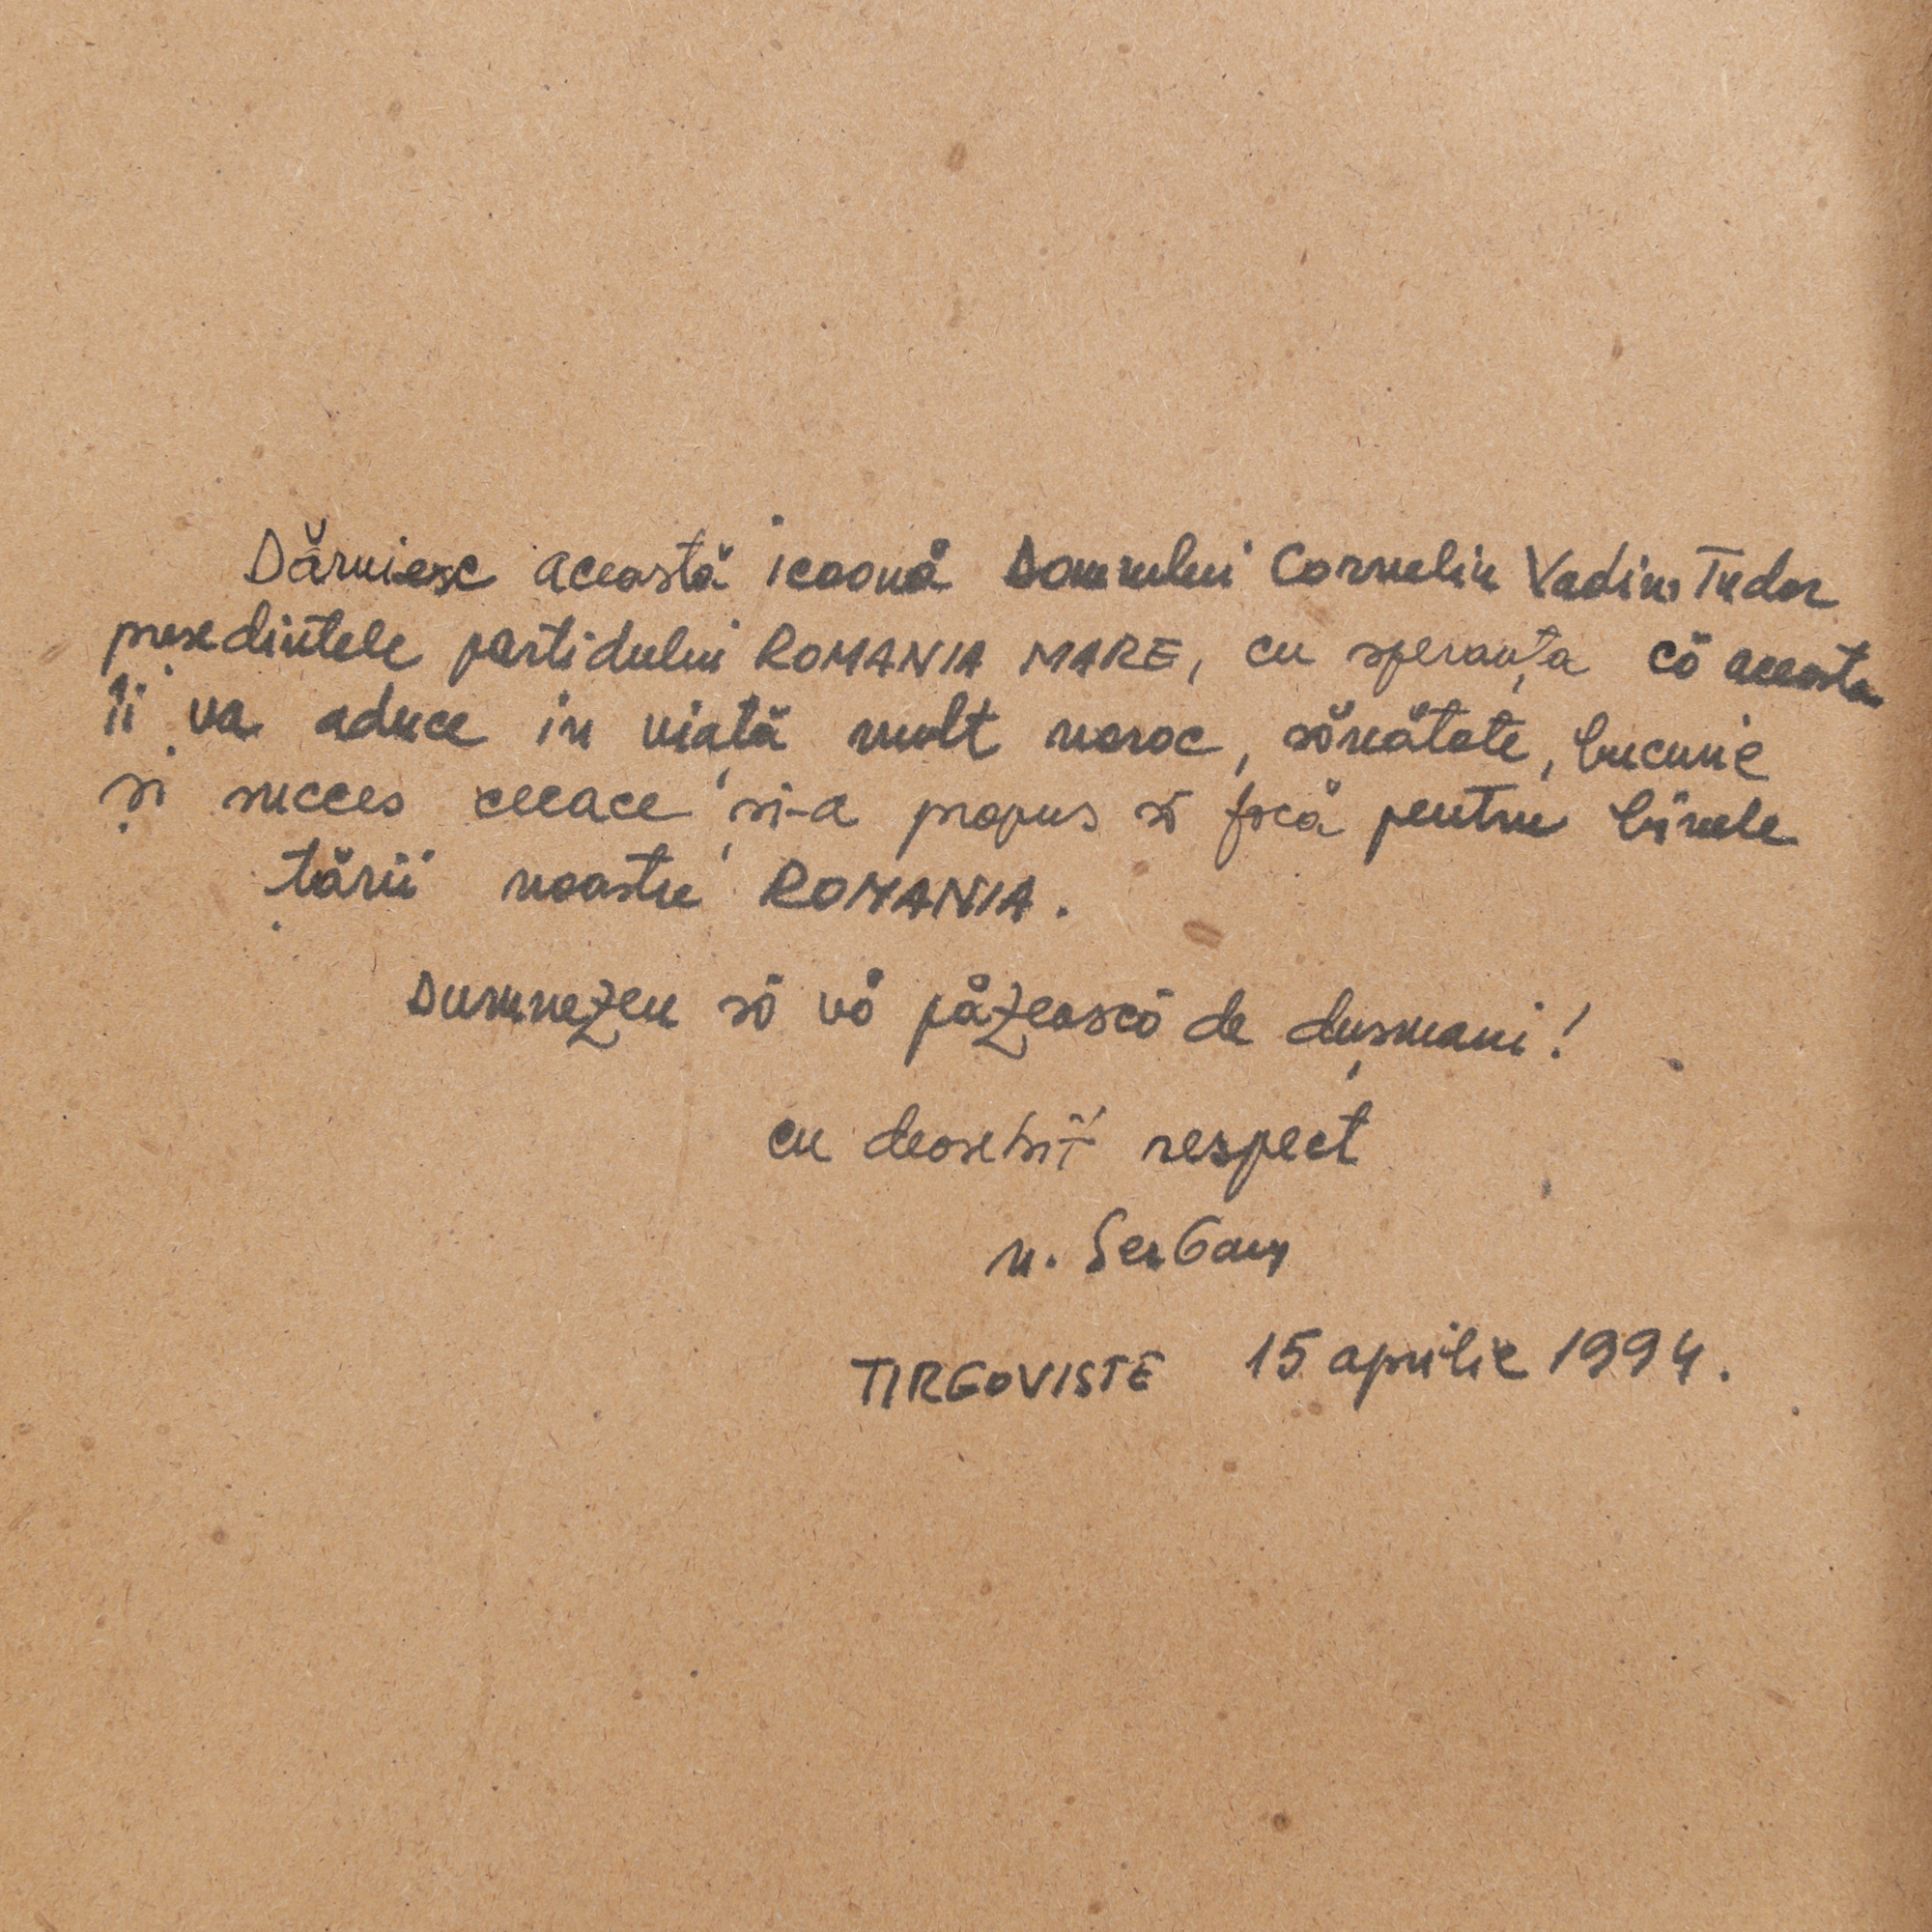 Dăruiesc această icoană Domnului Corneliu Vadim Tudor
presedintele partidului ROMANIA MARE, cu speranța că aceasta
îi va aduce in viață mult noroc, sănătate, bucurie
și succes ceeace și-a propus să facă pentru binele
țării noastre ROMANIA.
Dumnezeu să vă păzească de dușmani!
cu deosebit respect
n. Serban
TIRGOVISTE 15 aprilie 1994.